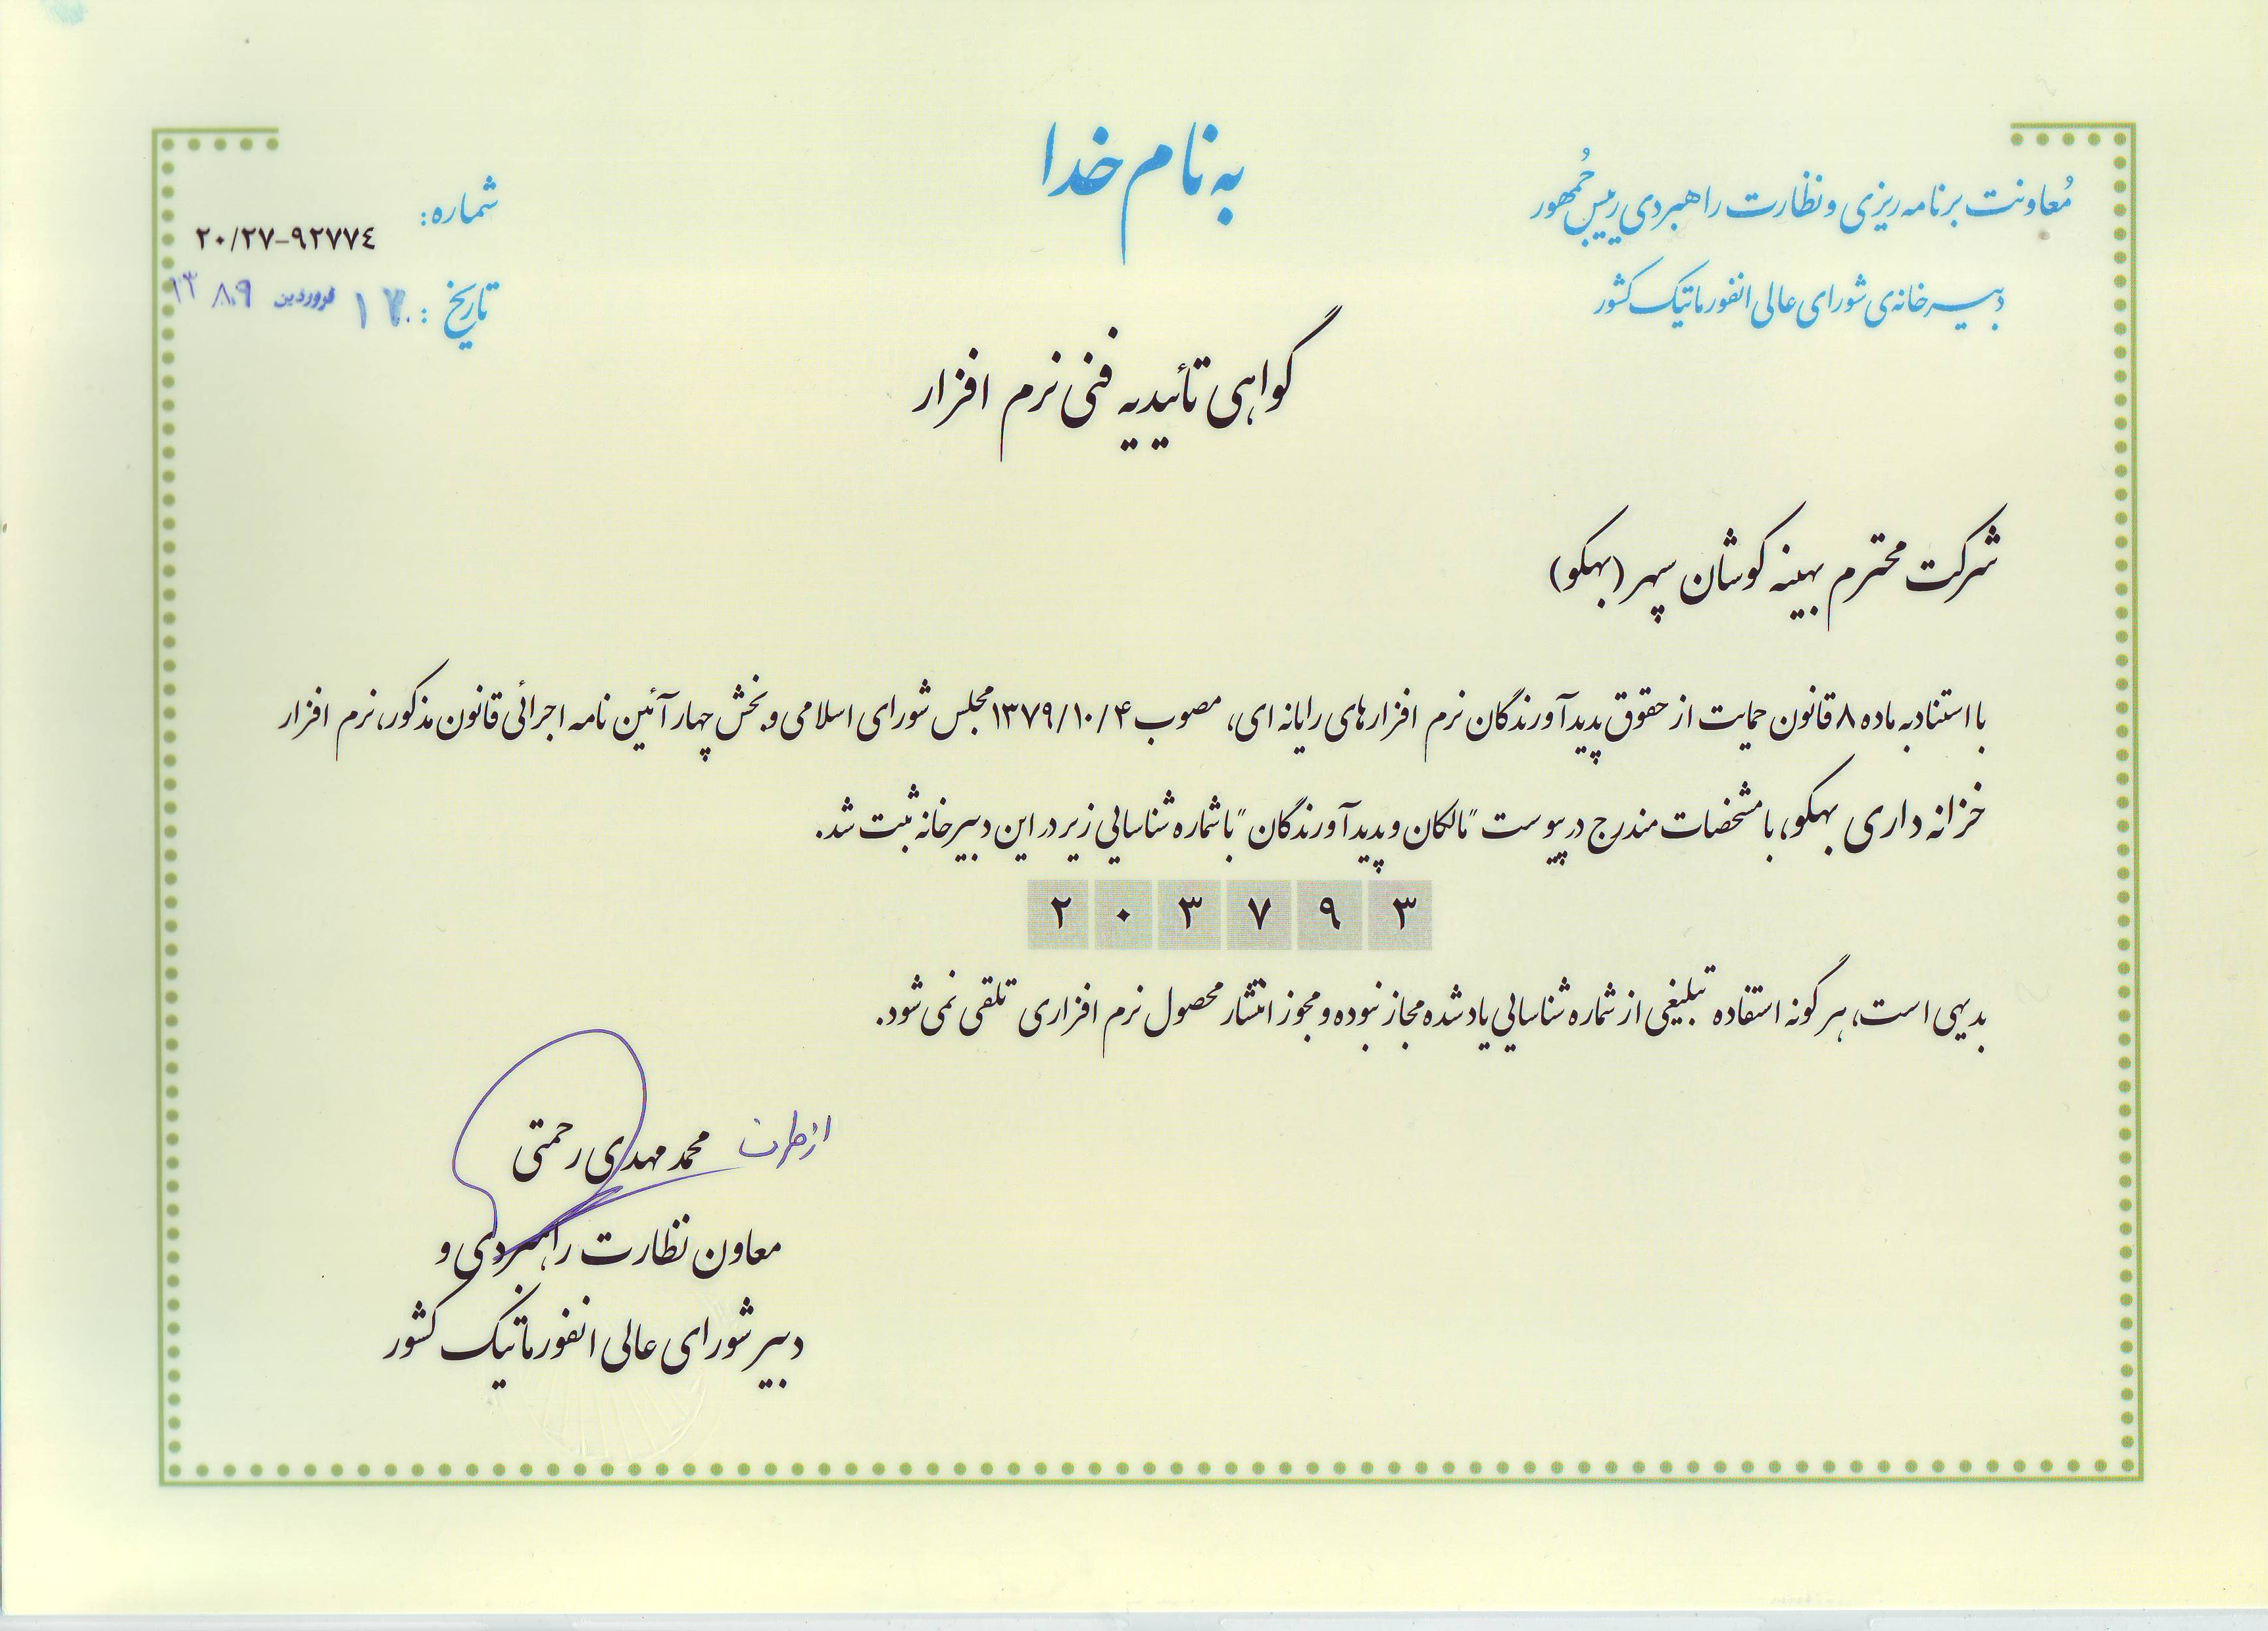 به نام خدا
معاونت برنامه ریزی و نظارت راهبردی رییس جمهور
دبیرخانه‌ی شورای عالی انفورماتیک کشور
شماره:
۲۰/۲۷-۹۲۷۷۴
تاریخ: ۱۷ فروردین ۱۳۸۹
گواهی تأییدیه فنی نرم افزار
شرکت محترم بهینه کوشان سپهر (بهکو)
با استناد به ماده ۸ قانون حمایت از حقوق پدیدآورندگان نرم افزارهای رایانه ای، مصوب ۱۳۷۹/۱۰/۴ مجلس شورای اسلامی و بخش چهار آئین نامه اجرائی قانون مذکور، نرم افزار
خزانه داری بهکو، با مشخصات مندرج در پیوست "مالکان و پدیدآورندگان" با شماره شناسایی زیر در این دبیرخانه ثبت شد.
۲۰۳۷۹۳
بدیهی است، هرگونه استفاده تبلیغی از شماره شناسایی یاد شده مجاز نبوده و مجوز انتشار محصول نرم افزاری تلقی نمی شود.
از طرف محمد مهدی رحمتی
معاون نظارت راهبردی و
دبیر شورای عالی انفورماتیک کشور